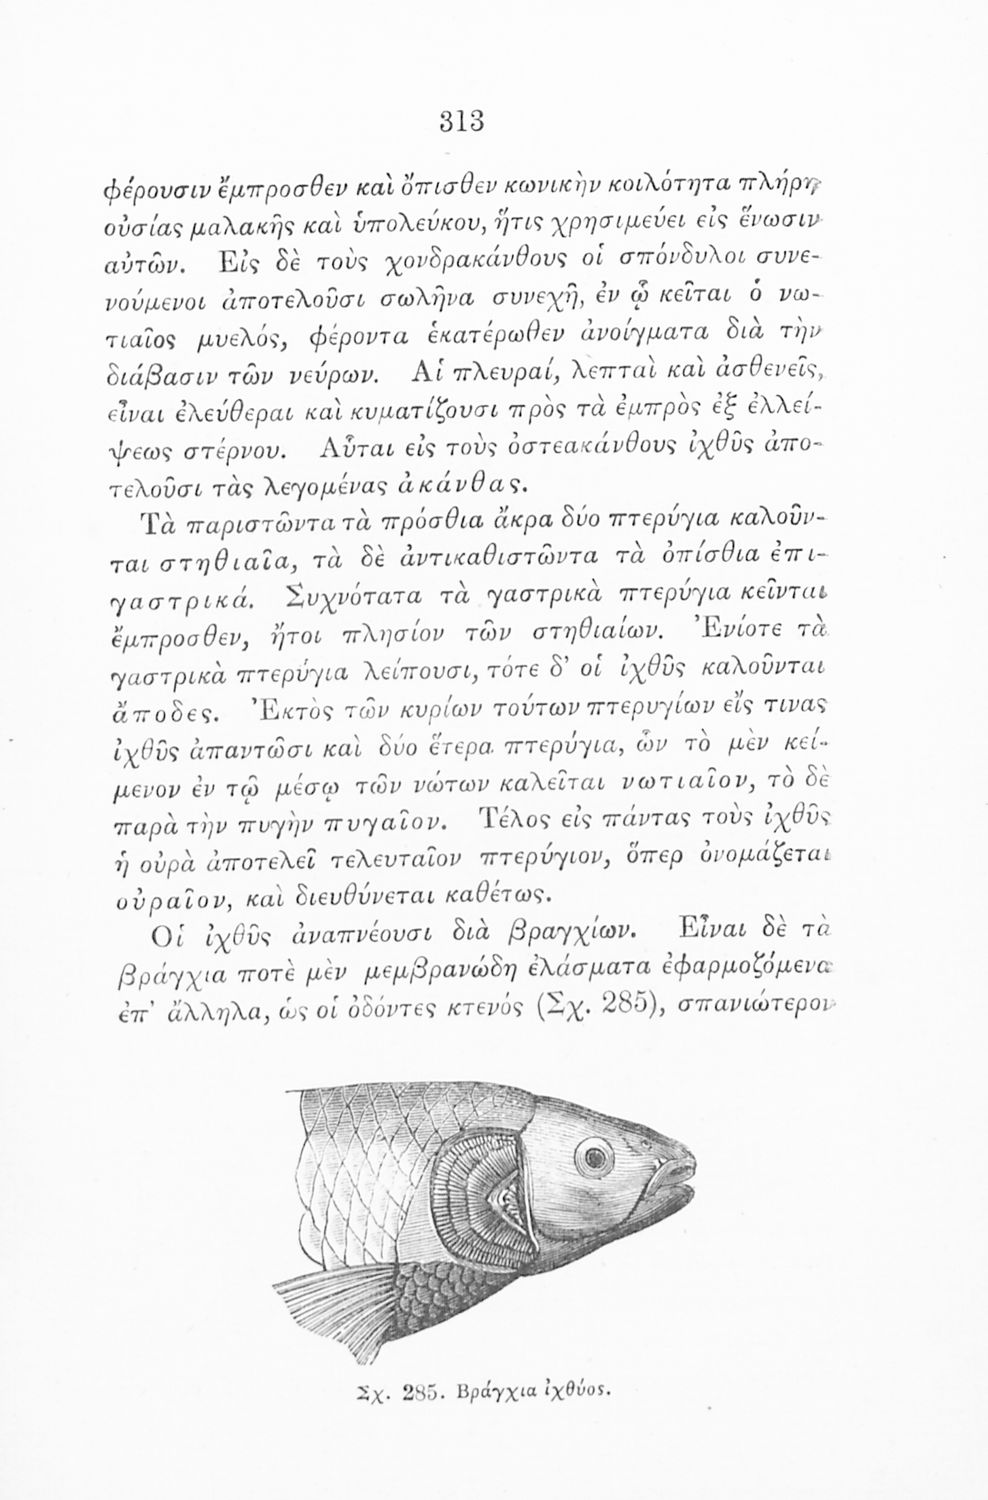 313
φέρουσιν ἔμπροσθεν καὶ ὄπισθεν κωνικὴν κοιλότητα πλήρη
οὐσίας μαλακῆς καὶ ὑπολεύκου, ἥτις χρησιμεύει εἰς ἕνωσιν
αὐτῶν. Εἰς δὲ τοὺς χονδρακάνθους οἱ σπόνδυλοι συνε-
νούμενοι ἀποτελοῦσι σωλῆνα συνεχῆ, ἐν ᾧ κεῖται ὁ νω-
τιαῖος μυελός, φέροντα ἑκατέρωθεν ἀνοίγματα διὰ τὴν
διάβασιν τῶν νεύρων. Αἱ πλευραί, λεπταὶ καὶ ἀσθενεῖς,
εἶναι ἐλεύθεραι καὶ κυματίζουσι πρὸς τὰ ἐμπρὸς ἐξ ἐλλεί-
ψεως στέρνου. Αὗται εἰς τοὺς ὀστεακάνθους ἰχθῦς ἀπο-
τελοῦσι τὰς λεγομένας ἀκάνθας.
Τὰ παριστῶντα τὰ πρόσθια ἄκρα δύο πτερύγια καλοῦν-
ται στηθιαῖα, τὰ δὲ ἀντικαθιστῶντα τὰ ὀπίσθια ἐπι-
γαστρικά. Συχνότατα τὰ γαστρικὰ πτερύγια κεῖνται
ἔμπροσθεν, ἤτοι πλησίον τῶν στηθιαίων. Ἐνίοτε τὰ
γαστρικὰ πτερύγια λείπουσι, τότε δ' οἱ ἰχθῦς καλοῦνται
ἄποδες. Ἐκτὸς τῶν κυρίων τούτων πτερυγίων εἴς τινας
ἰχθῦς ἀπαντῶσι καὶ δύο ἕτερα πτερύγια, ὧν τὸ μὲν κεί-
μενον ἐν τῷ μέσῳ τῶν νώτων καλεῖται νωτιαῖον, τὸ δὲ
παρὰ τὴν πυγὴν πυγαῖον. Τέλος εἰς πάντας τοὺς ἰχθῦς
ἡ οὐρὰ ἀποτελεῖ τελευταῖον πτερύγιον, ὅπερ ὀνομάζεται
οὐραῖον, καὶ διευθύνεται καθέτως.
Οἱ ἰχθῦς ἀναπνέουσι διὰ βραγχίων. Εἶναι δὲ τὰ
βράγχια ποτὲ μὲν μεμβρανώδη ἐλάσματα ἐφαρμοζόμενα
ἐπ' ἄλληλα, ὡς οἱ ὀδόντες κτενός (Σχ. 285), σπανιώτερον
Σχ. 285. Βράγχια ἰχθύος.